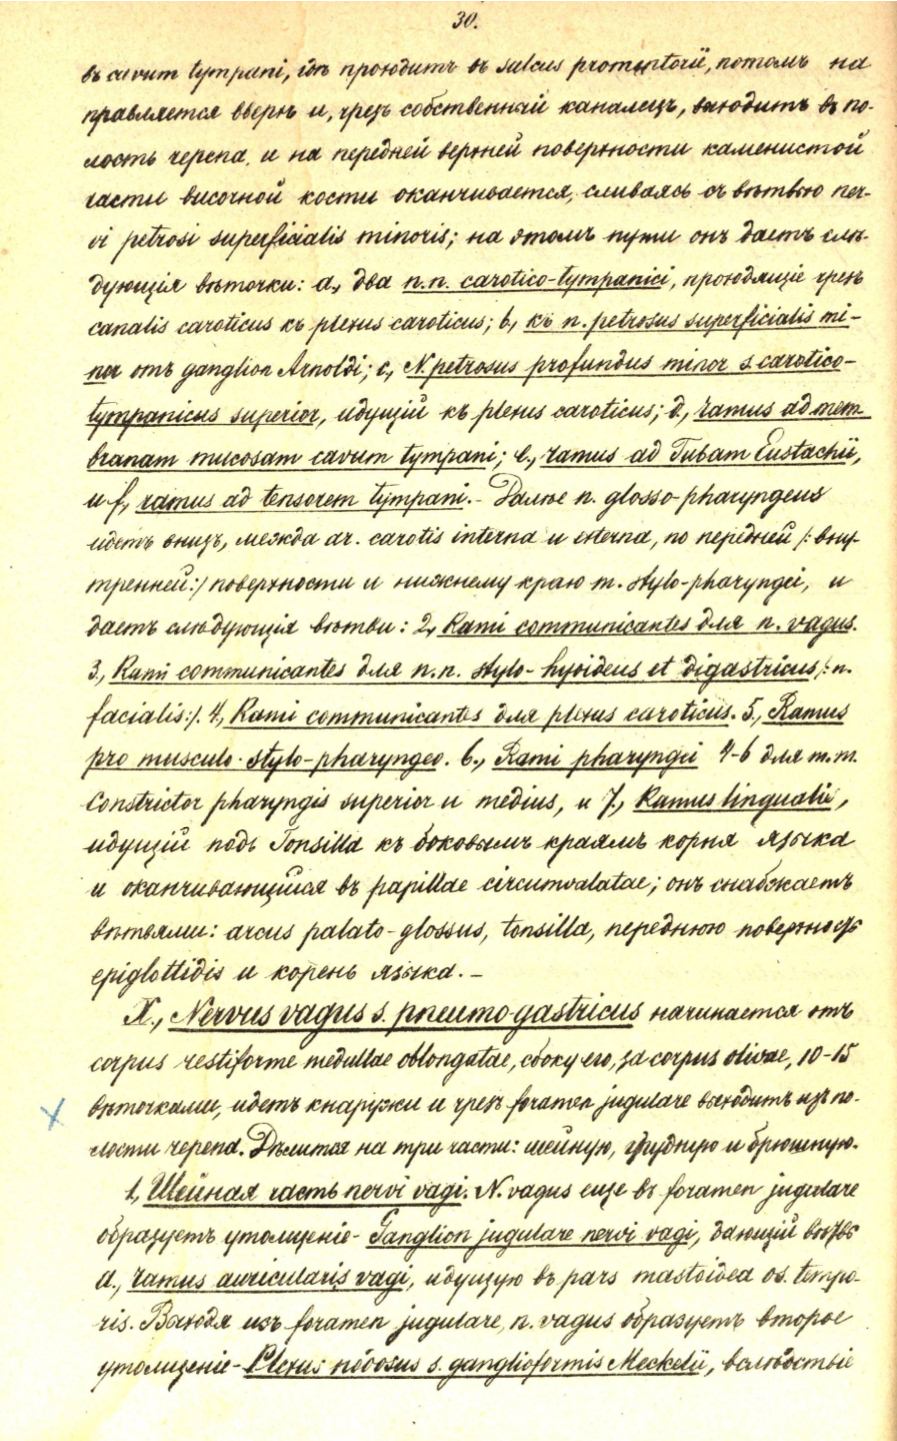 30.
въ cavum tympani, гдѣ проходитъ въ sulcus promontorii, потомъ на
правляется вверхъ и, чрезъ собственный каналецъ, выходитъ въ по-
лость черепа, и на передней верхней поверхности каменистой
части височной кости оканчивается, сливаясь съ вѣтвью ner-
vi petrosi superficialis minoris; на этомъ пути онъ даетъ слѣ-
дующія вѣточки: a, два n.n. carotico-tympanici, проходящіе чрезъ
canalis caroticus къ plexus caroticus; b, къ n. petrosus superficialis mi-
nor отъ ganglion Arnoldi; c, N. petrosus profundus minor s. carotico-
tympanicus superior, идущій къ plexus caroticus; d, ramus ad mem
branam mucosam cavum tympani; e, ramus ad Tubam Eustachii,
и f, ramus ad tensorem tympani.- Далѣе n. glosso-pharyngeus
идетъ внизъ, между ar. carotis interna и externa, по передней /:вну-
тренней:/ поверхности и нижнему краю m. stylo-pharyngei, и
даетъ слѣдующія вѣтви: 2, Rami communicantes для n. vagus.
3, Rami communicantes для n.n. stylo-hyoideus et digastricus /:n.
facialis:/. 4, Rami communicantes для plexus caroticus. 5, Ramus
pro musculo-stylo-pharyngeo. 6, Rami pharyngei 4-6 для m.m.
Constrictor pharyngis superior и medius, и 7, Ramus lingualis,
идущій подъ Tonsilla къ боковымъ краямъ корня языка
и оканчивающійся въ papillae circumvalatae; онъ снабжаетъ
вѣтвями: arcus palato-glossus, tonsilla, переднюю поверхность
epiglottidis и корень языка.-
X., Nervus vagus s. pneumo-gastricus начинается отъ
corpus restiforme medullae oblongatae, сбоку его, за corpus olivae, 10-15
вѣточками, идетъ кнаружи и чрезъ foramen jugulare выходитъ изъ по-
лости черепа. Дѣлится на три части: шейную, грудную и брюшную.
1, Шейная часть nervi vagi. N. vagus еще въ foramen jugulare
образуетъ утолщеніе- Ganglion jugulare nervi vagi, дающій вѣтвь
a., ramus auricularis vagi, идущую въ pars mastoidea os. tempo-
ris. Выходя изъ foramen jugulare, n. vagus образуетъ второе
утолщеніе- Plexus nodosus s. ganglioformis Meckelii, вслѣдствіе